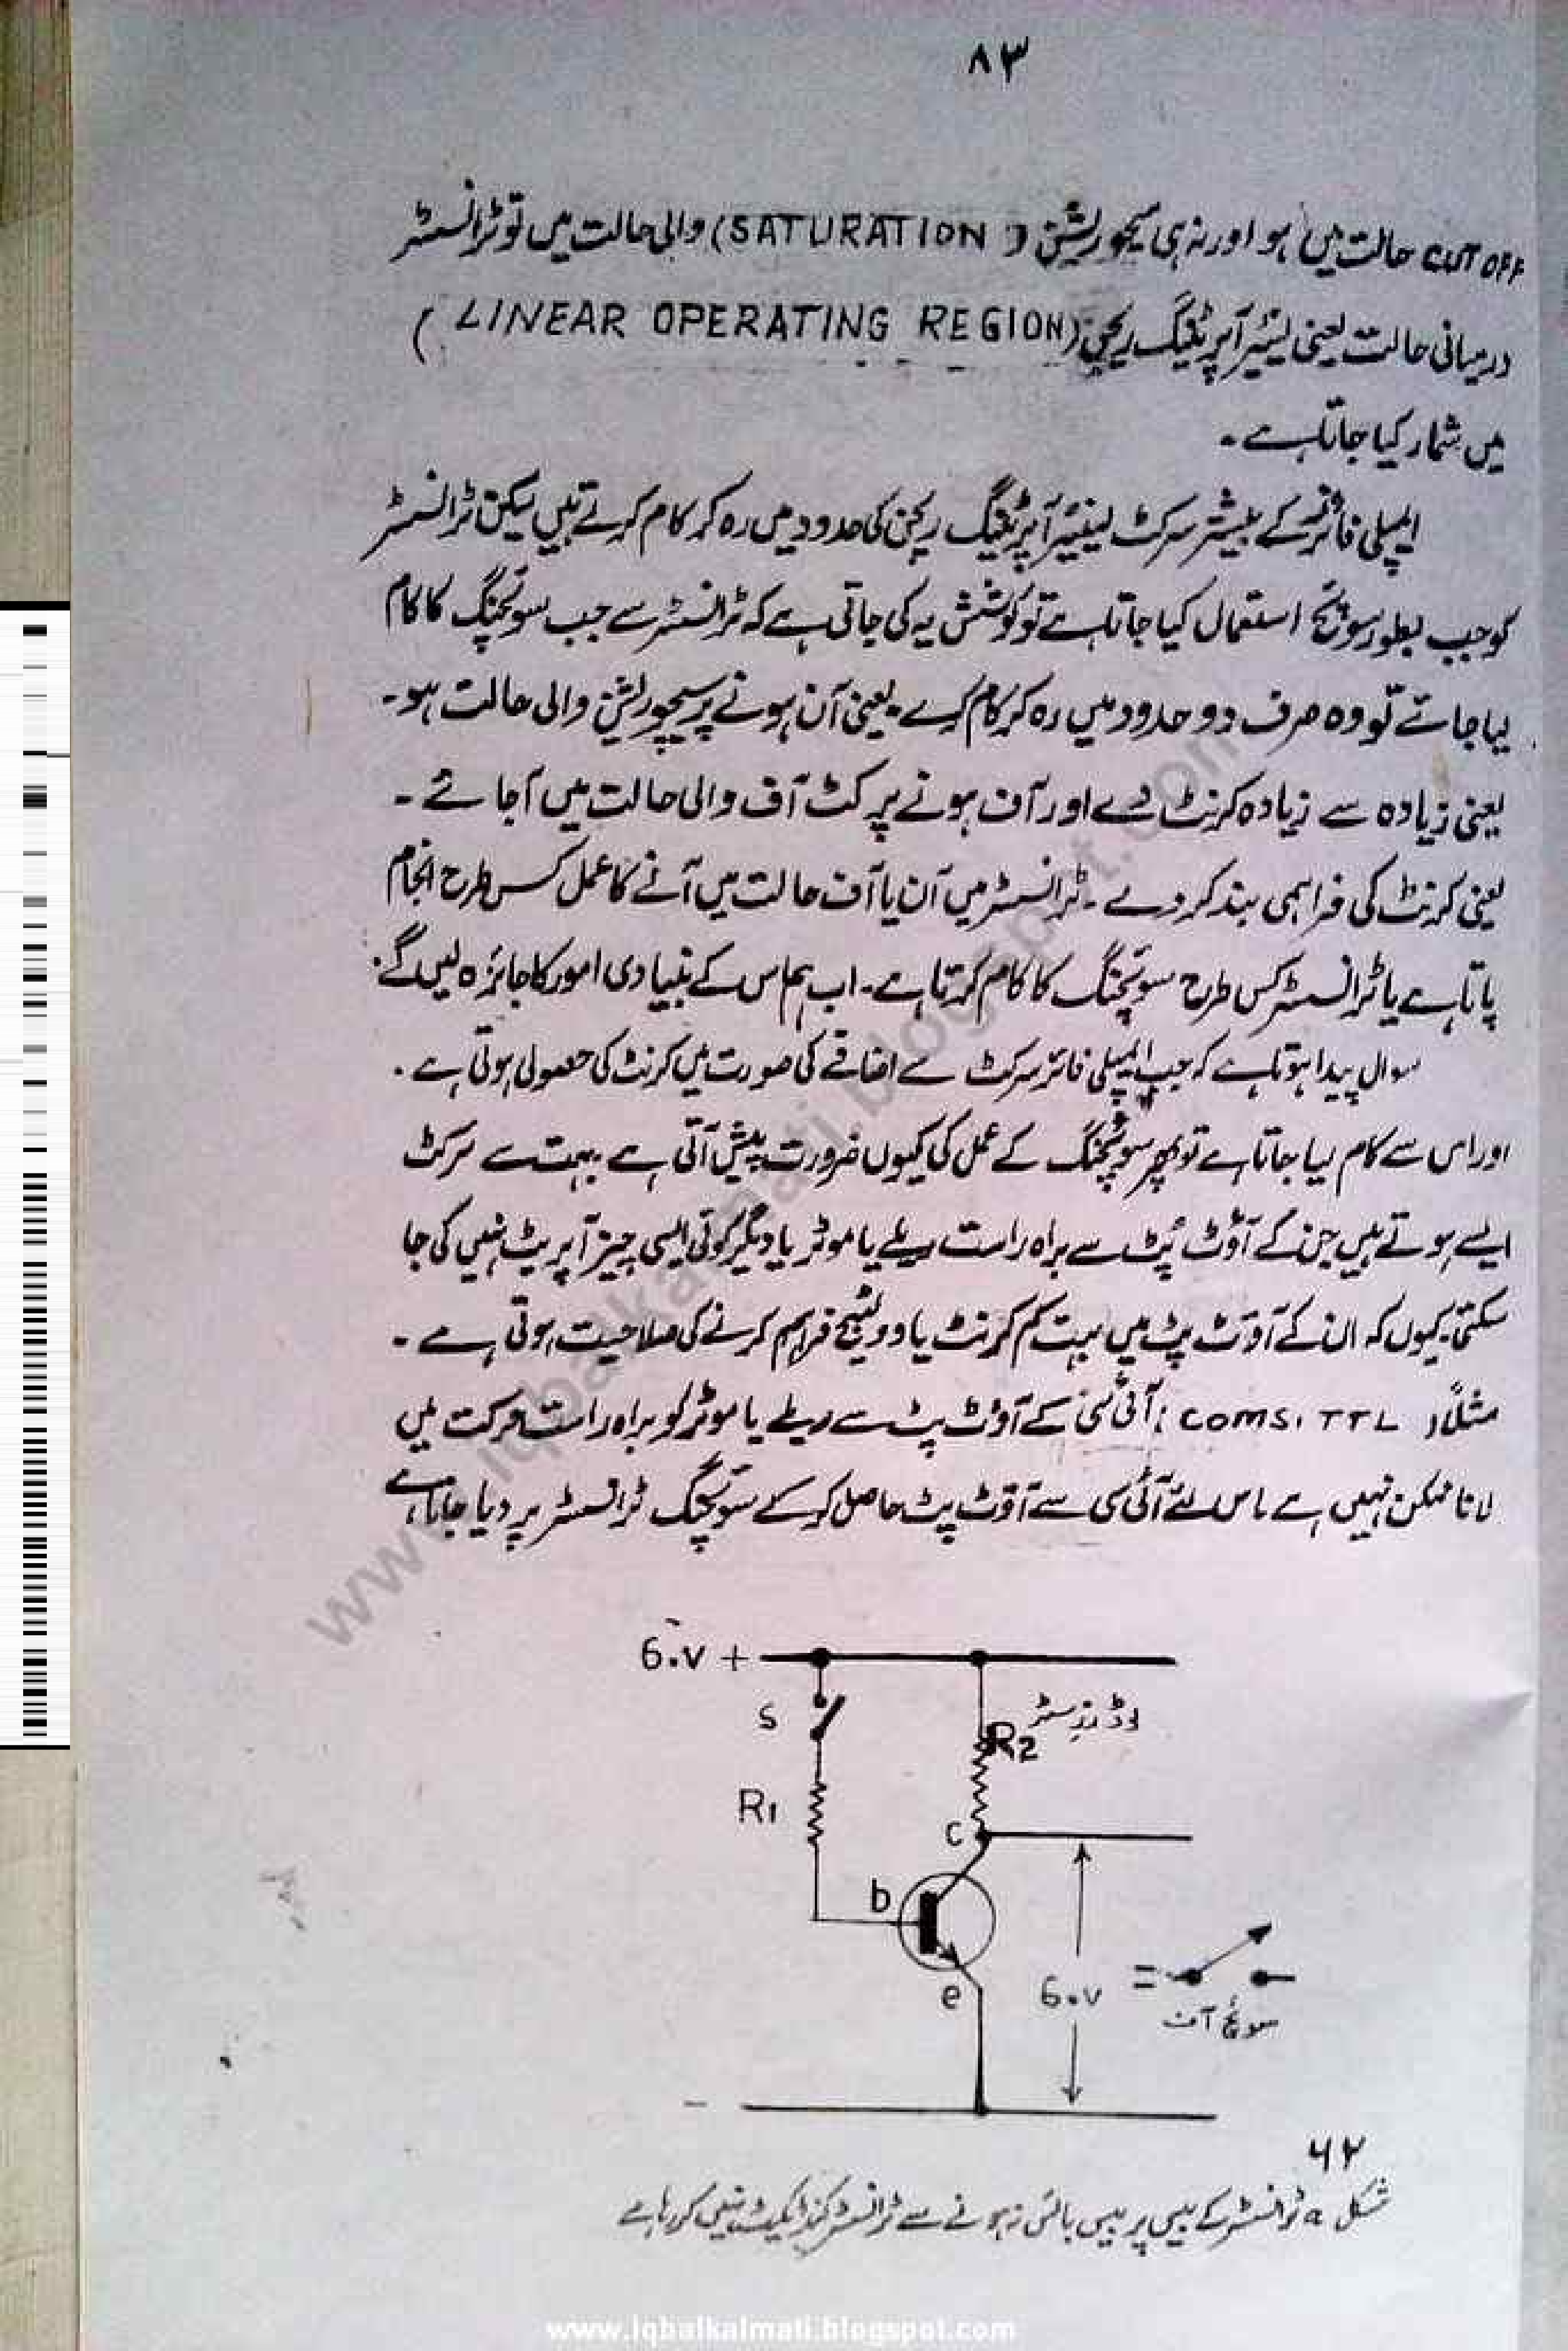 ۸۳
CUT OFF حالت میں ہو اور نہ ہی سیچوریشن (SATURATION) والی حالت میں تو ٹرانسسٹر
درمیانی حالت یعنی لینئیر آپریٹنگ ریجن (LINEAR OPERATING REGION)
میں شمار کیا جاتا ہے ۔
ایمپلی فائر کے بیشتر سرکٹ لینئیر آپریٹنگ ریجن کی حدود میں رہ کر کام کرتے ہیں لیکن ٹرانسسٹر
کو جب بطور سوئچ استعمال کیا جاتا ہے تو کوشش یہ کی جاتی ہے کہ ٹرانسسٹر سے جب سوئچنگ کا کام
لیا جائے تو وہ صرف دو حدود میں رہ کر کام کرے ۔ یعنی آن ہونے پر سیچوریشن والی حالت ہو ۔
یعنی زیادہ سے زیادہ کرنٹ دے اور آف ہونے پر کٹ آف والی حالت میں آ جائے ۔
یعنی کرنٹ کی فراہمی بند کر دے ۔ ٹرانسسٹر میں آن یا آف حالت میں آنے کا عمل کس طرح انجام
پاتا ہے یا ٹرانسسٹر کس طرح سوئچنگ کا کام کرتا ہے ۔ اب ہم اس کے بنیادی امور کا جائزہ لیں گے ۔
سوال پیدا ہوتا ہے کہ جب ایمپلی فائر سرکٹ سے اضافے کی صورت میں کرنٹ کی حصولی ہوتی ہے ۔
اور اس سے کام لیا جاتا ہے تو پھر سوئچنگ کے عمل کی کیوں ضرورت پیش آتی ہے ۔ بہت سے سرکٹ
ایسے ہوتے ہیں جن کے آؤٹ پٹ سے براہ راست ریلے یا موٹر یا دیگر کوئی ایسی چیز آپریٹ نہیں کی جا
سکتی ۔ کیوں کہ ان کے آؤٹ پٹ میں بہت کم کرنٹ یا وولٹیج فراہم کرنے کی صلاحیت ہوتی ہے ۔
مثلاً COMS, TTL آئی سی کے آؤٹ پٹ سے ریلے یا موٹر کو براہ راست حرکت میں
لانا ممکن نہیں ہے ۔ اس لئے آئی سی سے آؤٹ پٹ حاصل کر کے سوئچنگ ٹرانسسٹر پر دیا جاتا ہے
6.v +
S
لوڈ رزسٹر
R2
R1
c
b
e
6.v
=
سوئچ آف
-
۶۲
شکل a ٹرانسسٹر کے بیس پر بیس بائس نہ ہونے سے ٹرانسسٹر کنڈیکٹ نہیں کر رہا ہے
www.iqbalkalmati.blogspot.com
www.iqbalkalmati.blogspot.com